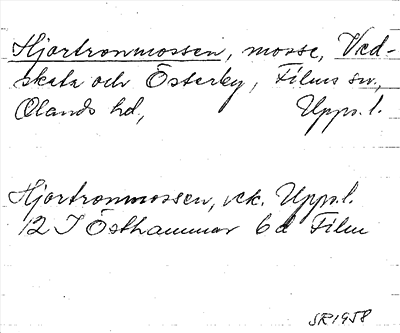 Hjortronmossen, mosse, Ved-
skata och Österby, Films sn,
Olands hd, Upps. l.
Hjortronmossen, eck. Upps. l.
12 I Östhammar 6d Film
SR 1958